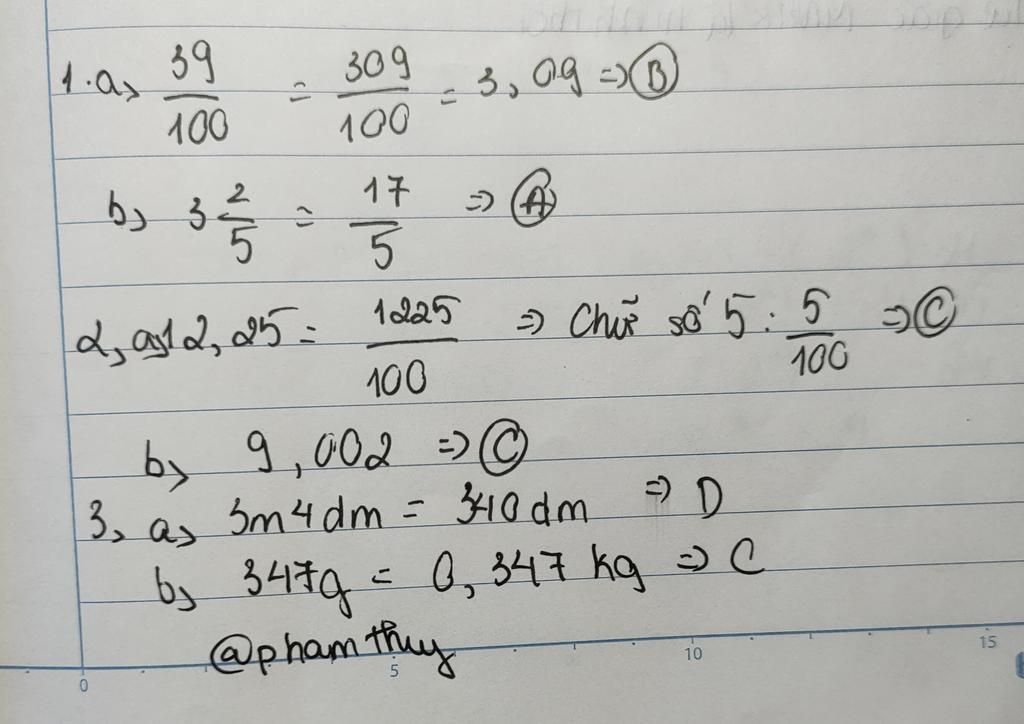 1. a, 39/100 = 309/100 = 3,09 => B
b, 3 2/5 = 17/5 => A
2, a, 12,25 = 1225/100 => Chữ số 5 : 5/100 => C
b, 9,002 => C
3, a, 3m4dm = 340dm => D
b, 347g = 0,347 kg => C
@phamthuy
0 5 10 15